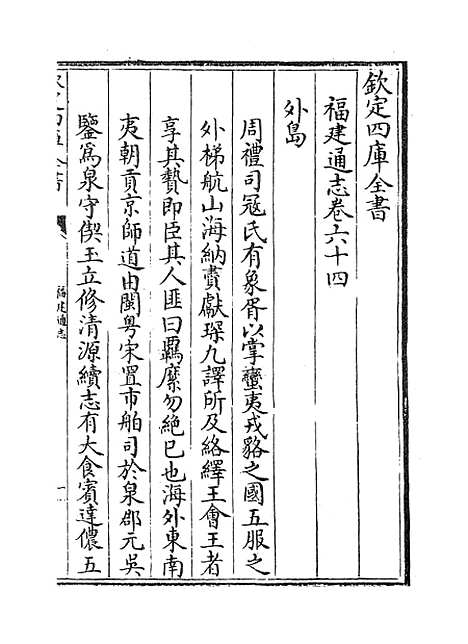 欽定四庫全書
福建通志卷六十四
外島
周禮司冦氏有象胥以掌蠻夷戎貉之國五服之
外梯航山海納賮獻琛九譯所及絡繹王會王者
享其贄即臣其人匪曰覊縻勿絶已也海外東南
夷朝貢京師道由閩粤宋置市舶司於泉郡元吳
鑒爲泉守偰玉立修清源續志有大食賓達儂五
福建通志
一